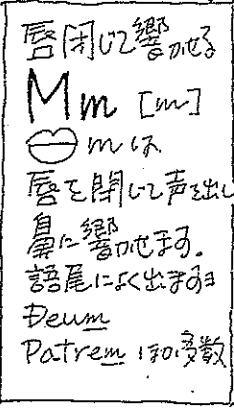 唇閉じて響かせる
Mm [m]
mは
唇を閉じて声を出し
鼻に響かせます。
語尾によく出ますヨ
Deum
Patrem ほか多数